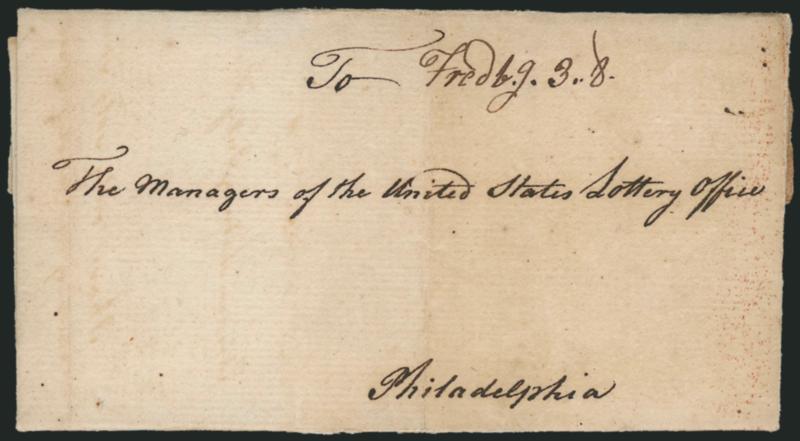 To Fredb.g. 3..8.
The Managers of the United States Lottery Office
Philadelphia